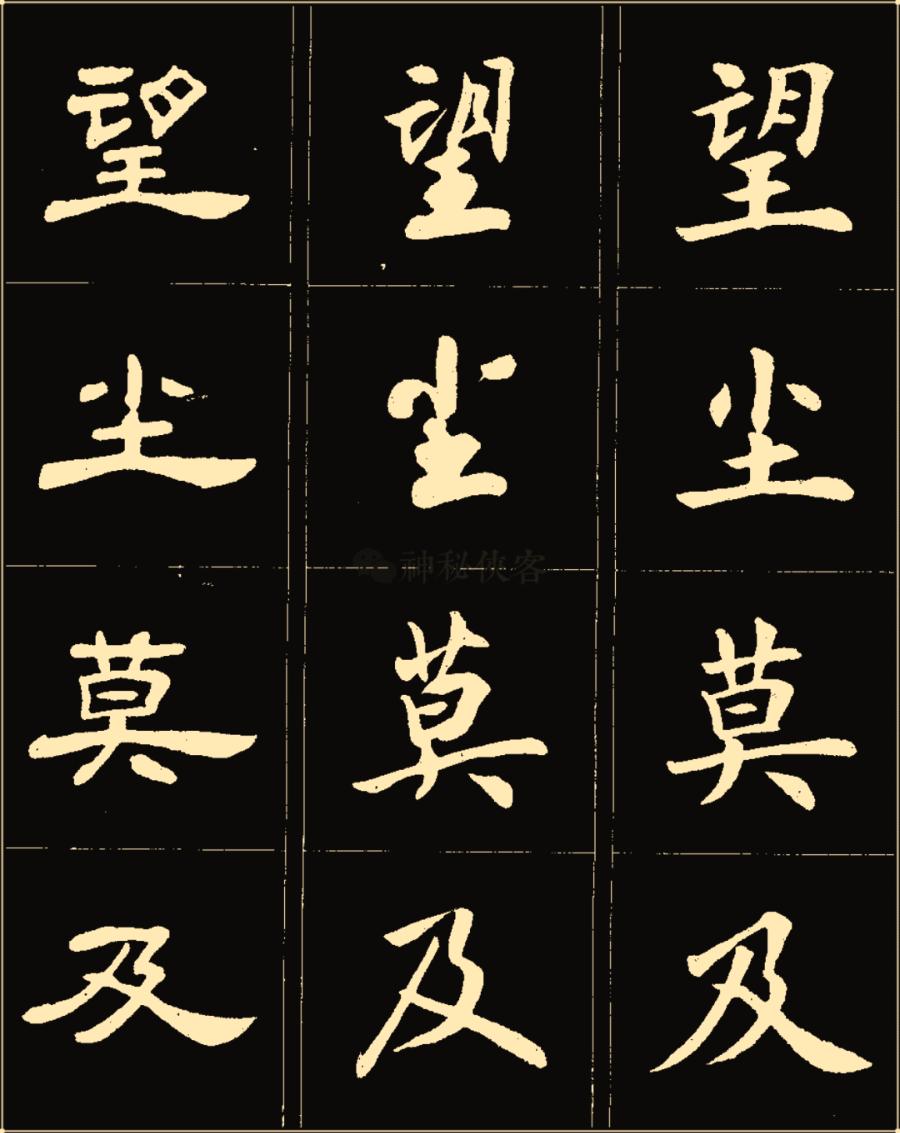 望 望 望
尘 尘 尘
莫 莫 莫
及 及 及
神秘侠客